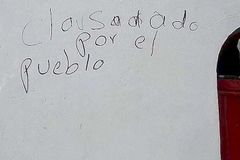 clausudado
por el
pueblo